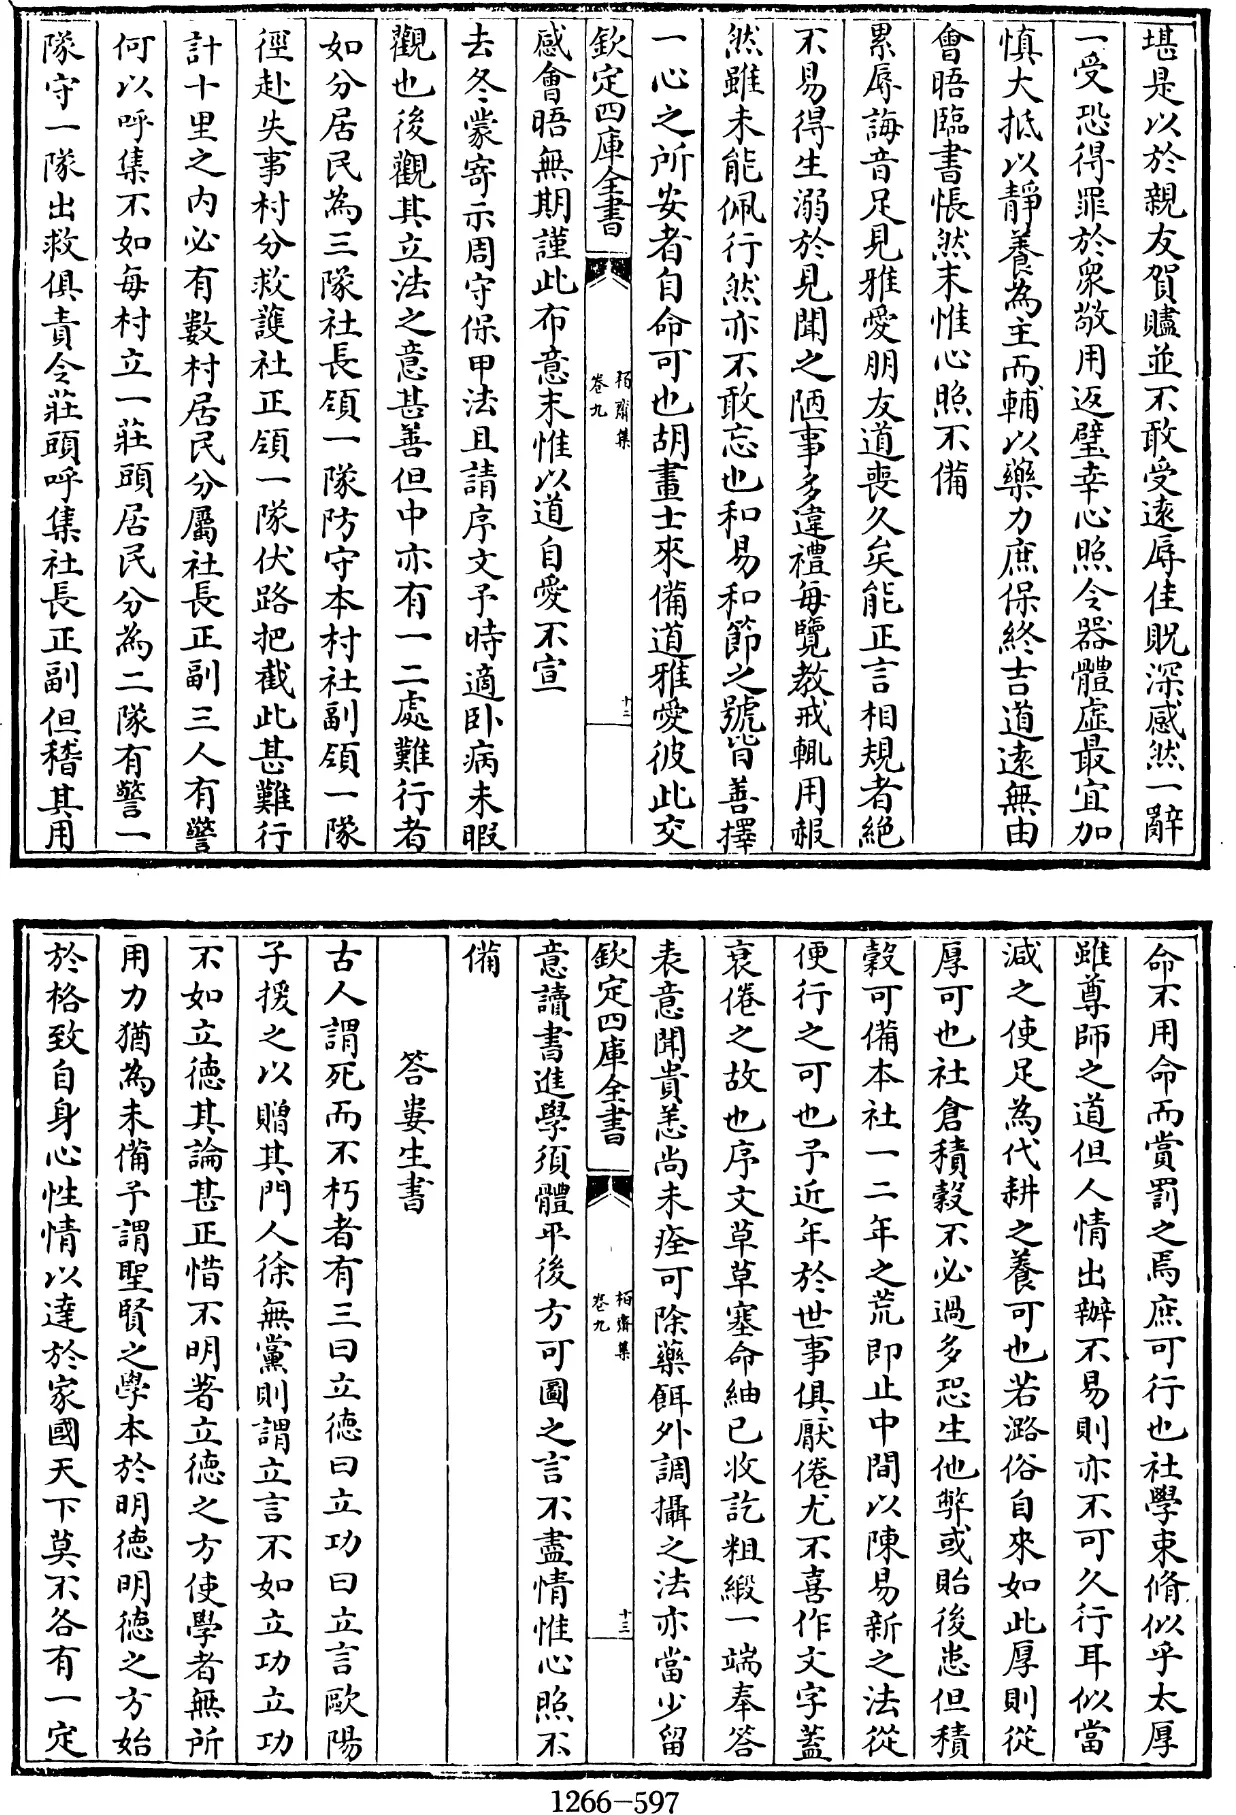 堪是以於親友賀贐並不敢受遠辱佳貺深感然一辭
一受恐得罪於衆敬用返璧幸心照令器體虛最宜加
慎大抵以靜養為主而輔以藥力庶保終吉道遠無由
會晤臨書悵然末惟心照不備
累辱誨音足見雅愛朋友道喪久矣能正言相規者絶
不易得生溺於見聞之陋事多違禮每覽教戒輒用赧
然雖未能佩行然亦不敢忘也和易和節之號皆善擇
一心之所安者自命可也胡畫士來備道雅愛彼此交
欽定四庫全書
栢齋集
卷九
十二
感會晤無期謹此布意末惟以道自愛不宣
去冬蒙寄示周守保甲法且請序文予時適卧病未暇
觀也後觀其立法之意甚善但中亦有一二處難行者
如分居民為三隊社長領一隊防守本村社副領一隊
徑赴失事村分救護社正領一隊伏路把截此甚難行
計十里之内必有數村居民分屬社長正副三人有警
何以呼集不如每村立一莊頭居民分為二隊有警一
隊守一隊出救俱責令莊頭呼集社長正副但稽其用
命不用命而賞罰之焉庶可行也社學束脩似乎太厚
雖尊師之道但人情出辦不易則亦不可久行耳似當
減之使足為代耕之養可也若潞俗自來如此厚則從
厚可也社倉積穀不必過多恐生他弊或貽後患但積
穀可備本社一二年之荒即止中間以陳易新之法從
便行之可也予近年於世事俱厭倦尤不喜作文字蓋
衰倦之故也序文草草塞命紬已收訖粗緞一端奉答
表意聞貴恙尚未痊可除藥餌外調攝之法亦當少留
欽定四庫全書
栢齋集
卷九
十三
意讀書進學須體平後方可圖之言不盡情惟心照不
備
答婁生書
古人謂死而不朽者有三曰立德曰立功曰立言歐陽
子援之以贈其門人徐無黨則謂立言不如立功立功
不如立德其論甚正惜不明著立德之方使學者無所
用力猶為未備予謂聖賢之學本於明德明德之方始
於格致自身心性情以達於家國天下莫不各有一定
1266—597